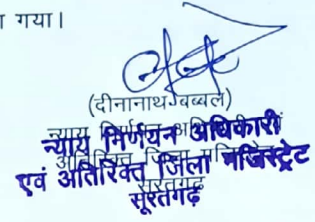 गया।
(दीनानाथ बब्बल)
न्याय निर्णयन अधिकारी
एवं अतिरिक्त जिला मजिस्ट्रेट
सूरतगढ़